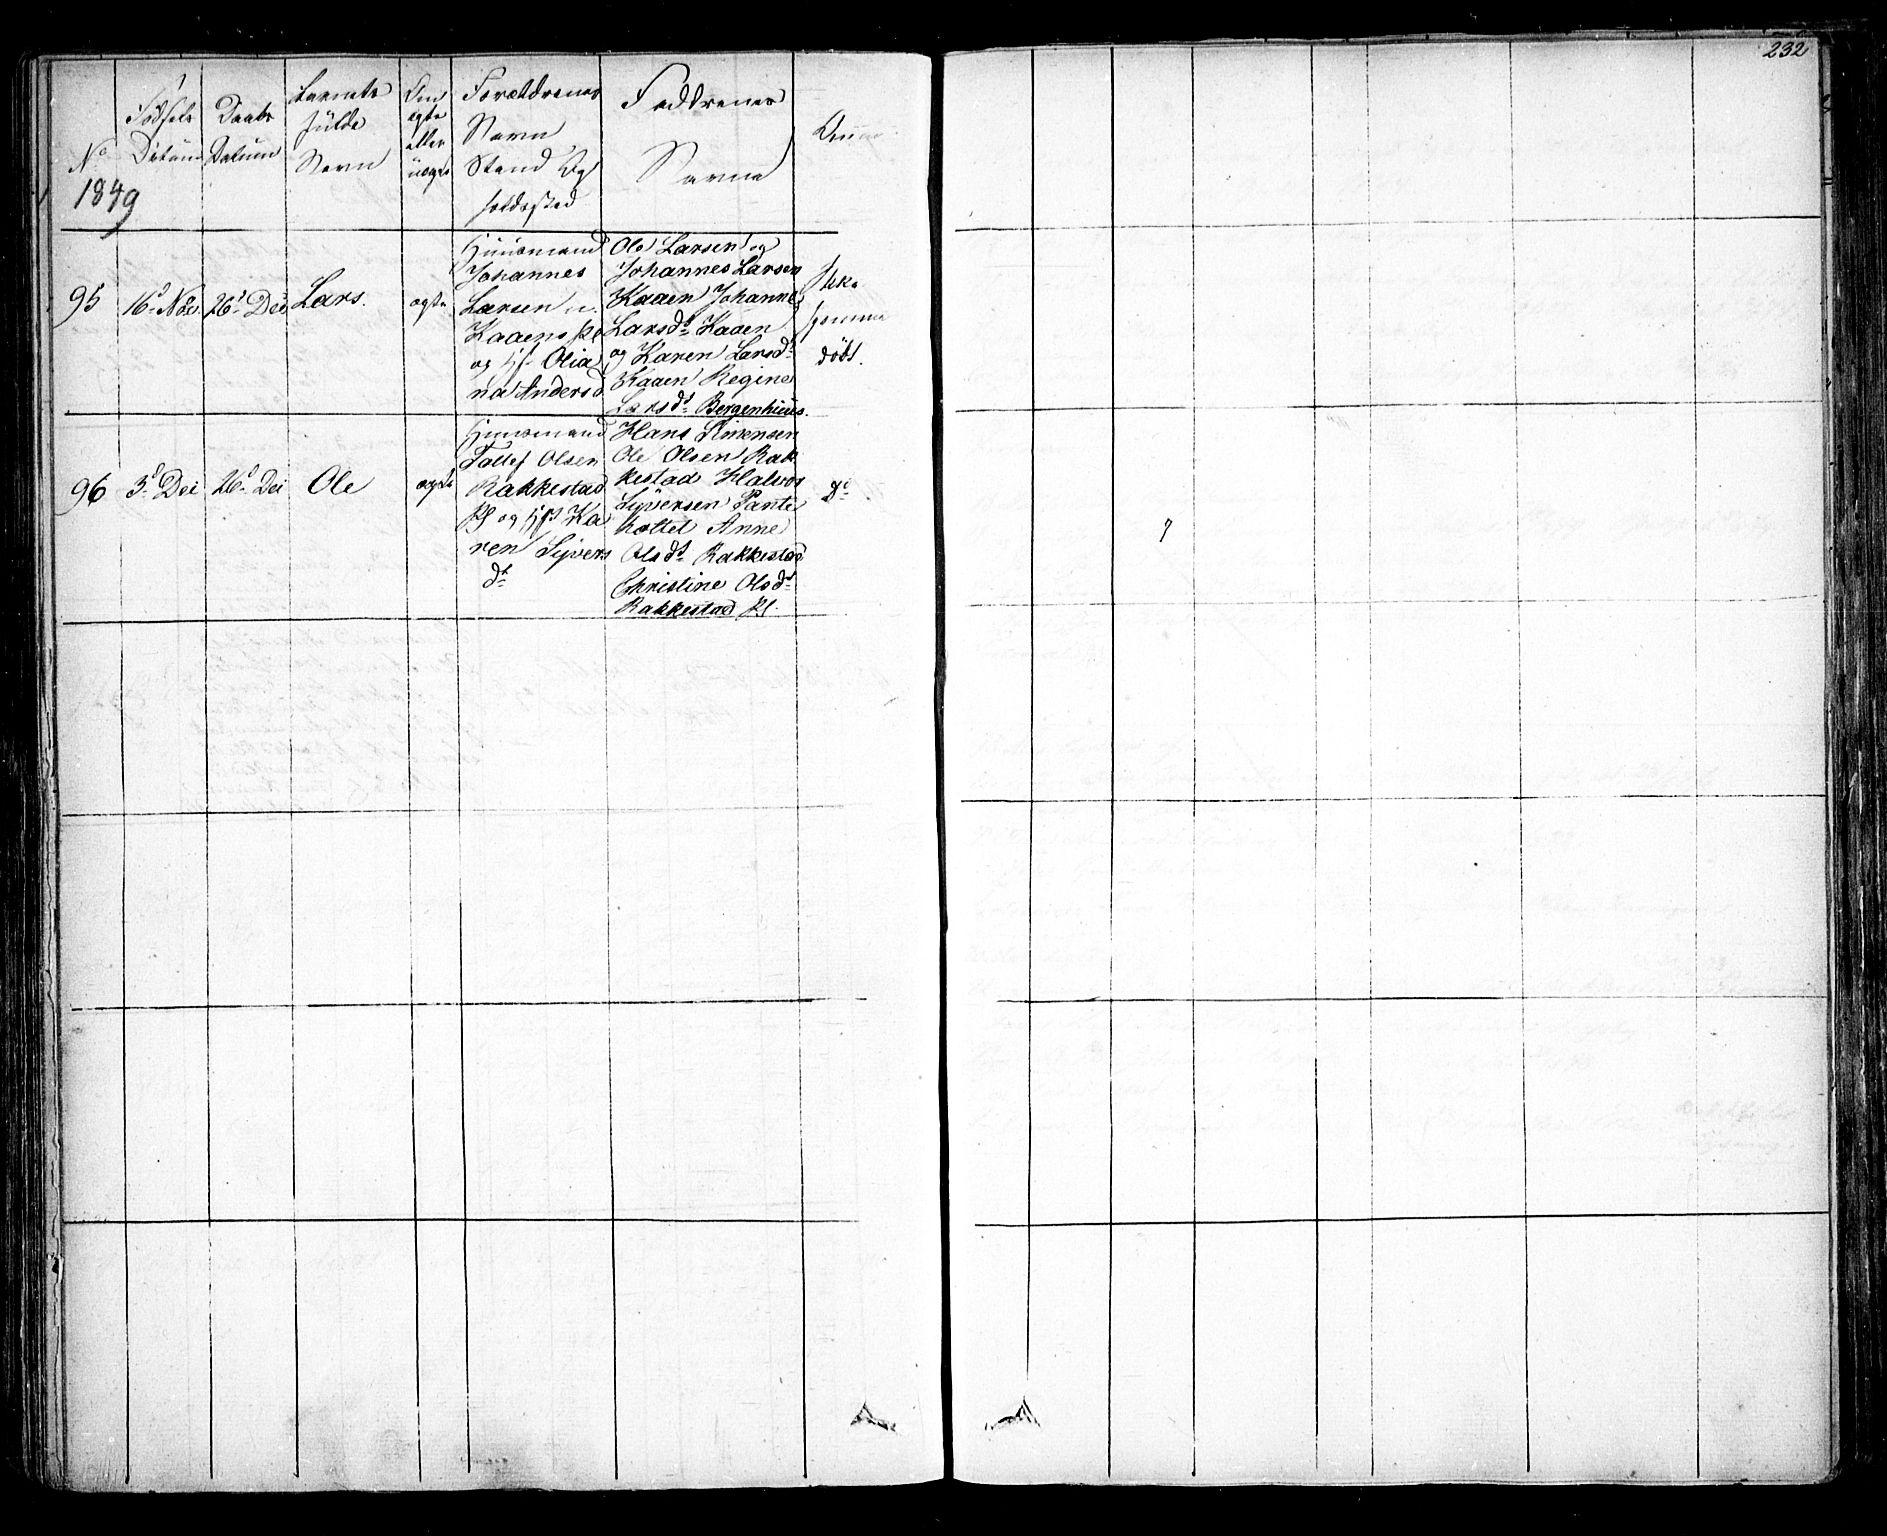 232
No
1849
Födsels
Datum
Daabs
Datum
Barnets
fulde
Navn
Om
ægte
eller
uægte
Forældrenes
Navn
Stand Og
holdssted
Faddrenes
Navne
Anm
95
16d Nov.
26d Dec
Lars.
ægte
Huusmand
Johannes
Larsen
Kaaens
og Olia
na Andersd
Ole Larsen og
Johannes Larsen
Kaaen Johanne
Larsdt Kaaen
og Karen Larsdt
Kaaen Regine
Larsdt Bergenhuus.
hjemme
döbt.
96
3d Dec
26d Dec
Ole
ægte
Huusmand
Tollef Olsen
Rakkestad
og Ka
ren Syvers
dt
Hans Simensen
Ole Olsen Rak
kestad Halvor
Syversen Pante
hottet Anne
Olsdt Rakkestad
Christine Olsdt
Rakkestad Pl.
Do